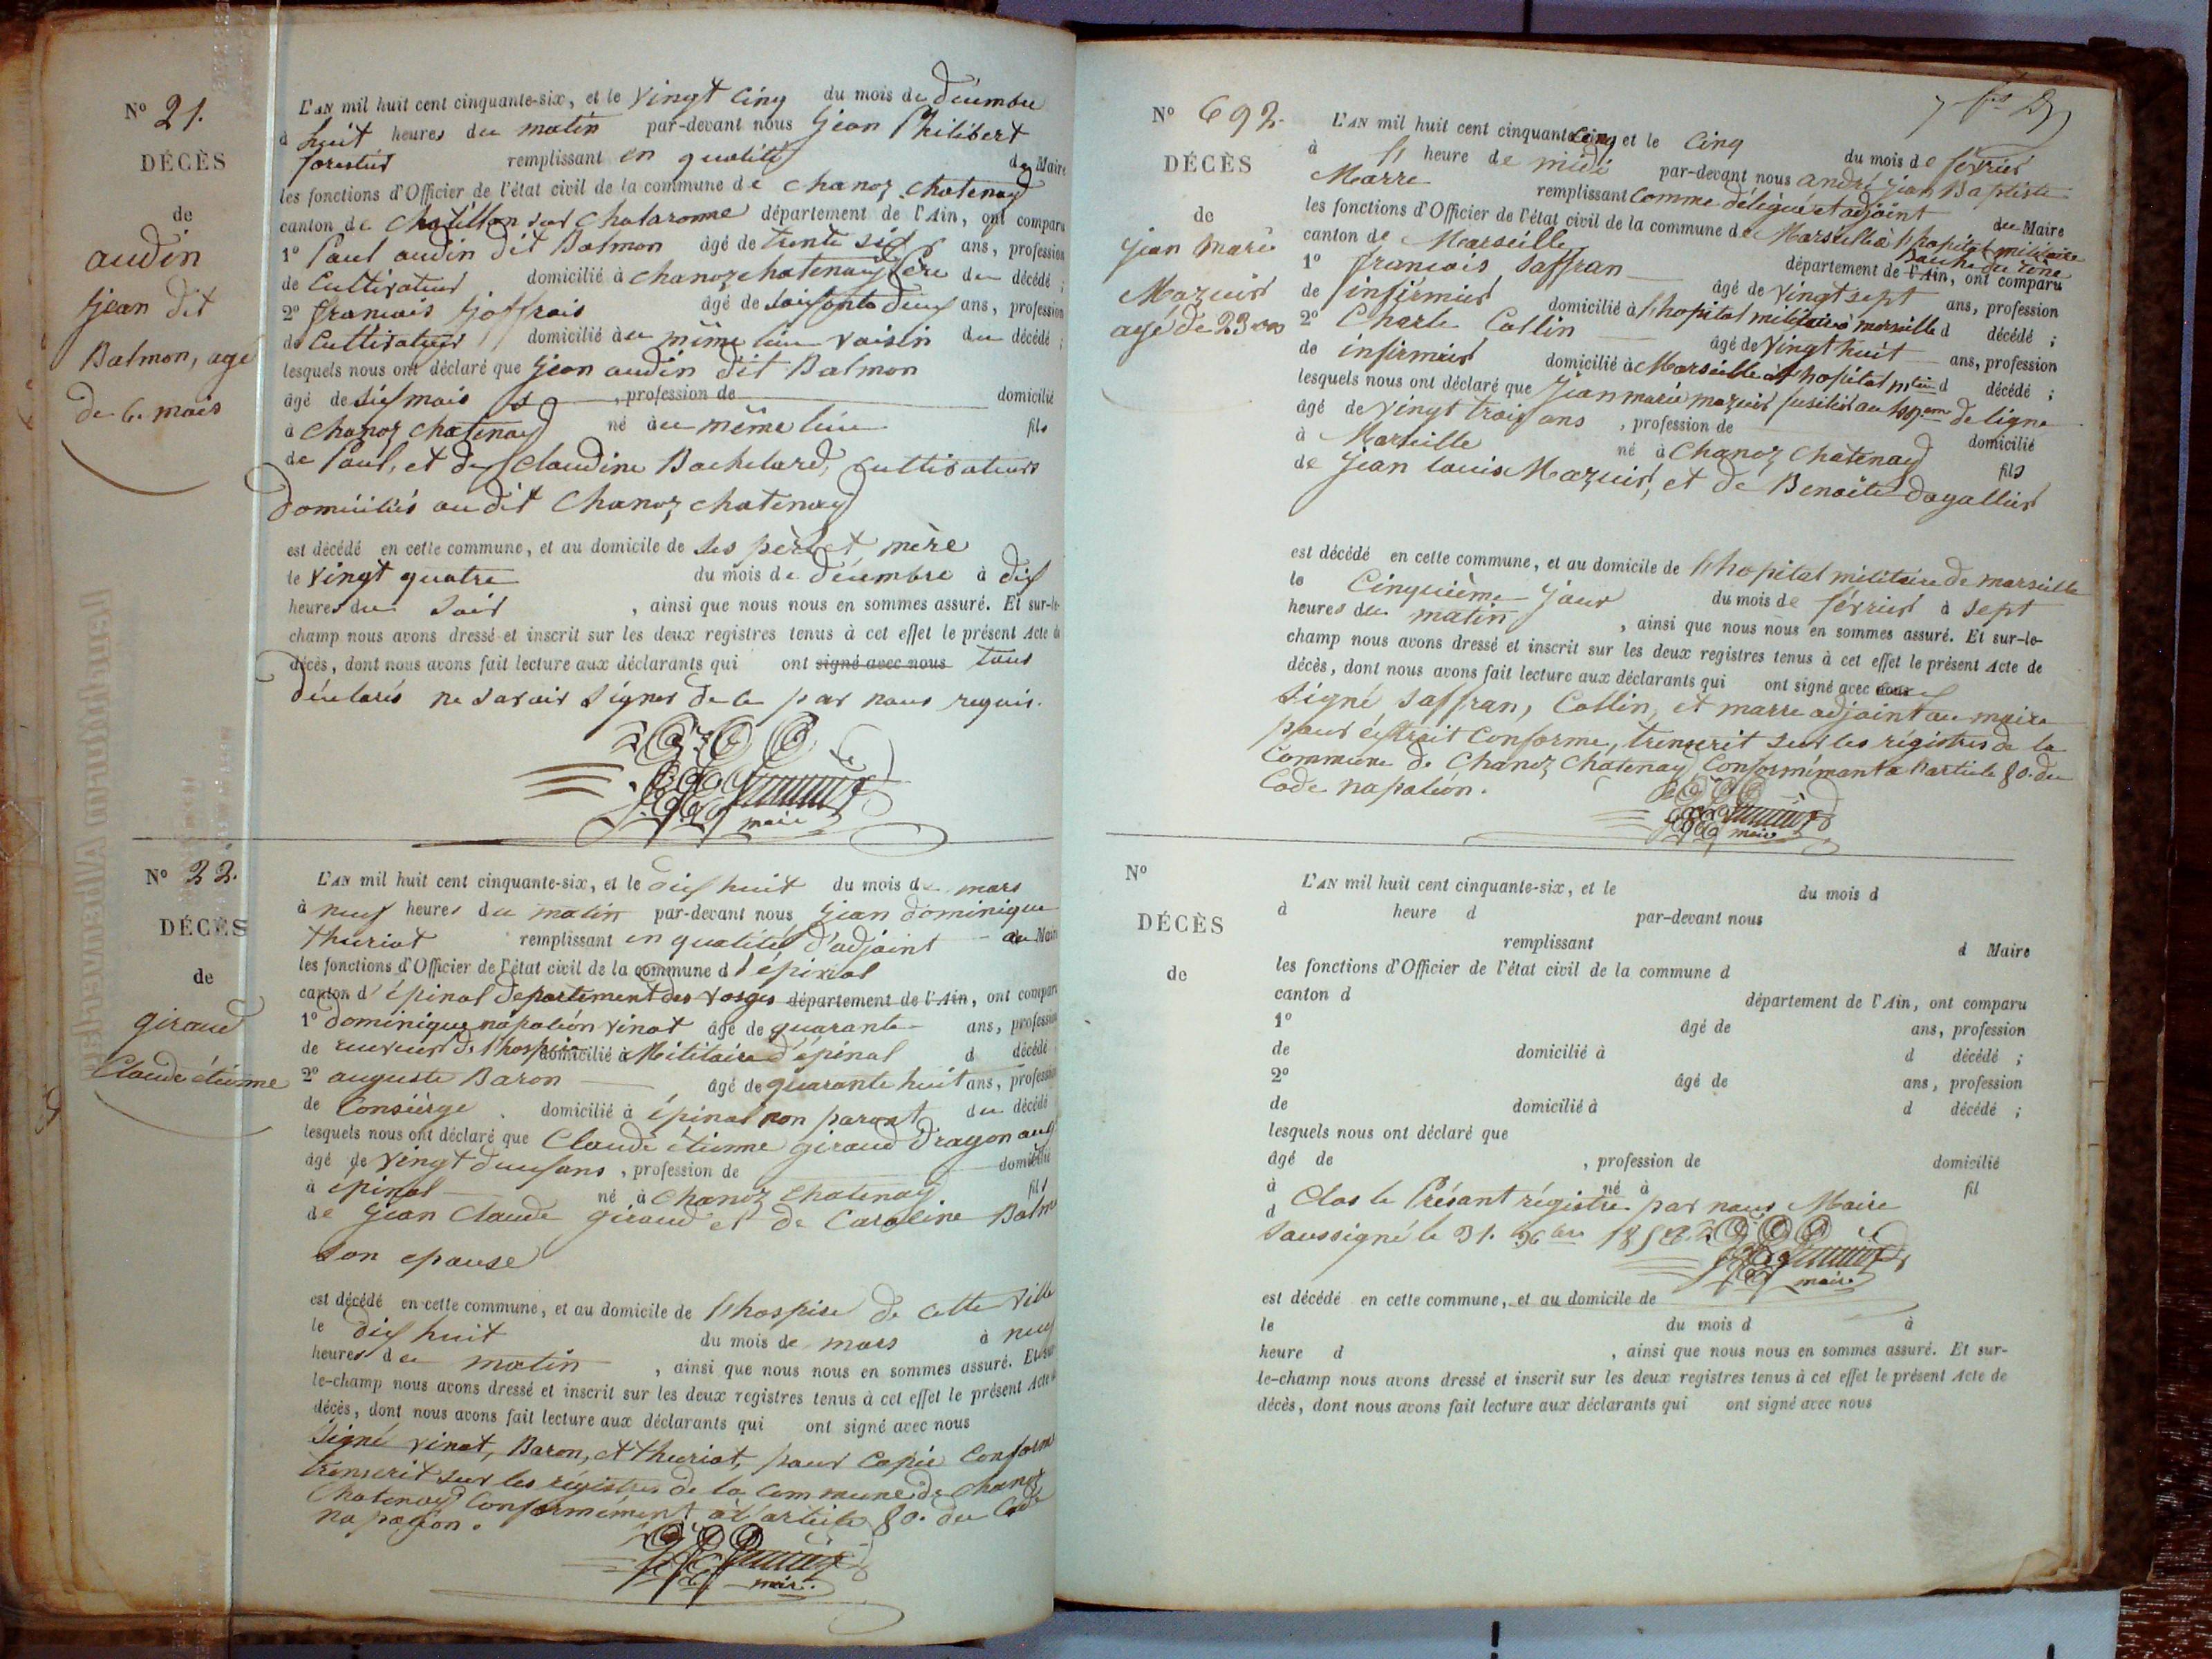 N° 21.
DÉCÈS
de
audin
jean dit
Balmon, agé
de 6. mois
L'AN mil huit cent cinquante-six, et le vingt cinq du mois de décembre
à huit heures du matin par-devant nous jean Philibert
forestier remplissant en qualité de Maire
les fonctions d'Officier de l'état civil de la commune de chanoz chatenay
canton de chatillon sur chalaronne département de l'Ain, ont comparu
1° Paul audin dit Balmon âgé de trente six ans, profession
de Cultivateur domicilié à chanoz chatenay père du décédé ;
2° francois joffrais âgé de soixante deux ans, profession
de Cultivateur domicilié au même lieu voisin du décédé ;
lesquels nous ont déclaré que jean audin dit Balmon
âgé de six mois , profession de domicilié
à chanoz chatenay né au même lieu fils
de Paul, et de Claudine Bachelard, cultivateurs
domiciliés au dit Chanoz chatenay
est décédé en cette commune, et au domicile de ses père et mère
le vingt quatre du mois de décembre à dix
heures du soir , ainsi que nous nous en sommes assuré. Et sur-le-
champ nous avons dressé et inscrit sur les deux registres tenus à cet effet le présent Acte de
décès, dont nous avons fait lecture aux déclarants qui ont signé avec nous tous
déclarés ne savoir signer de ce par nous requis.
maire
N° 22.
DÉCÈS
de
giraud
Claude étienne
L'AN mil huit cent cinquante-six, et le dix huit du mois de mars
à neuf heures du matin par-devant nous jean dominique
thuriot remplissant en qualité d'adjoint au Maire
les fonctions d'Officier de l'état civil de la commune d'épinal
canton d'épinal departement des vosges département de l'Ain, ont comparu
1° dominique napoléon vinot âgé de quarante ans, profession
de l'hospice domicilié à Militaire d'épinal d décédé ;
2° auguste Baron âgé de quarante huit ans, profession
de Consièrge domicilié à épinal non parent du décédé
lesquels nous ont déclaré que Claude étienne giraud dragon au
âgé de vingt deux ans , profession de domicilié
à épinal né à chanoz chatenay fils
de jean Claude giraud et de Caroline Balm
son epouse
est décédé en cette commune, et au domicile de l'hospice de cette ville
le dix huit du mois de mars à neuf
heures du matin , ainsi que nous nous en sommes assuré. Et sur-
le-champ nous avons dressé et inscrit sur les deux registres tenus à cet effet le présent Acte de
décès, dont nous avons fait lecture aux déclarants qui ont signé avec nous
signé vinot, Baron, et thuriot, pour copie conforme
transcrit sur les régistres de la commune de chanoz
chatenay Conformément à l'article 80. du Code
napoléon.
maire.
N° 692.
DÉCÈS
de
jean marie
Mazuir
agé de 23 ans
L'AN mil huit cent cinquante cinq et le cinq du mois de février
à heure de midi par-devant nous andré jean Baptiste
Marre remplissant comme délégué et adjoint du Maire
les fonctions d'Officier de l'état civil de la commune de Marseille à l'hopital militaire
canton de Marseille Bouche du rône département de l'Ain, ont comparu
1° francois Saffran âgé de vingt sept ans, profession
de infirmier domicilié à l'hopital militaire à marseille d décédé ;
2° Charle Collin âgé de vingt huit ans, profession
de infirmier domicilié à Marseille à l'hopital d décédé ;
lesquels nous ont déclaré que jean marie mazuir fusilier au de ligne
âgé de vingt trois ans , profession de domicilié
à Marseille né à Chanoz Châtenay fils
de jean louis Mazuir, et de Benoîte dagallier
est décédé en cette commune, et au domicile de l'hopital militaire de marseille
le Cinquième jour du mois de février à sept
heures du matin , ainsi que nous nous en sommes assuré. Et sur-le-
champ nous avons dressé et inscrit sur les deux registres tenus à cet effet le présent Acte de
décès, dont nous avons fait lecture aux déclarants qui ont signé avec
signé saffran, Collin, et marre adjoint au maire
pour éxtrait conforme, transcrit sur les régistres de la
Commune de Chanoz Châtenay Conformément à l'article 80. du
Code napoléon.
maire
N°
DÉCÈS
de
L'AN mil huit cent cinquante-six, et le du mois d
à heure d par-devant nous
remplissant d Maire
les fonctions d'Officier de l'état civil de la commune d
canton d département de l'Ain, ont comparu
1° âgé de ans, profession
de domicilié à d décédé ;
2° âgé de ans, profession
de domicilié à d décédé ;
lesquels nous ont déclaré que
âgé de , profession de domicilié
à né à fil
d
Clos le Présant régistre par nous Maire
soussigné le 31. Xbre 1856
maire
est décédé en cette commune, et au domicile de
le du mois d à
heure d , ainsi que nous nous en sommes assuré. Et sur-
le-champ nous avons dressé et inscrit sur les deux registres tenus à cet effet le présent Acte de
décès, dont nous avons fait lecture aux déclarants qui ont signé avec nous